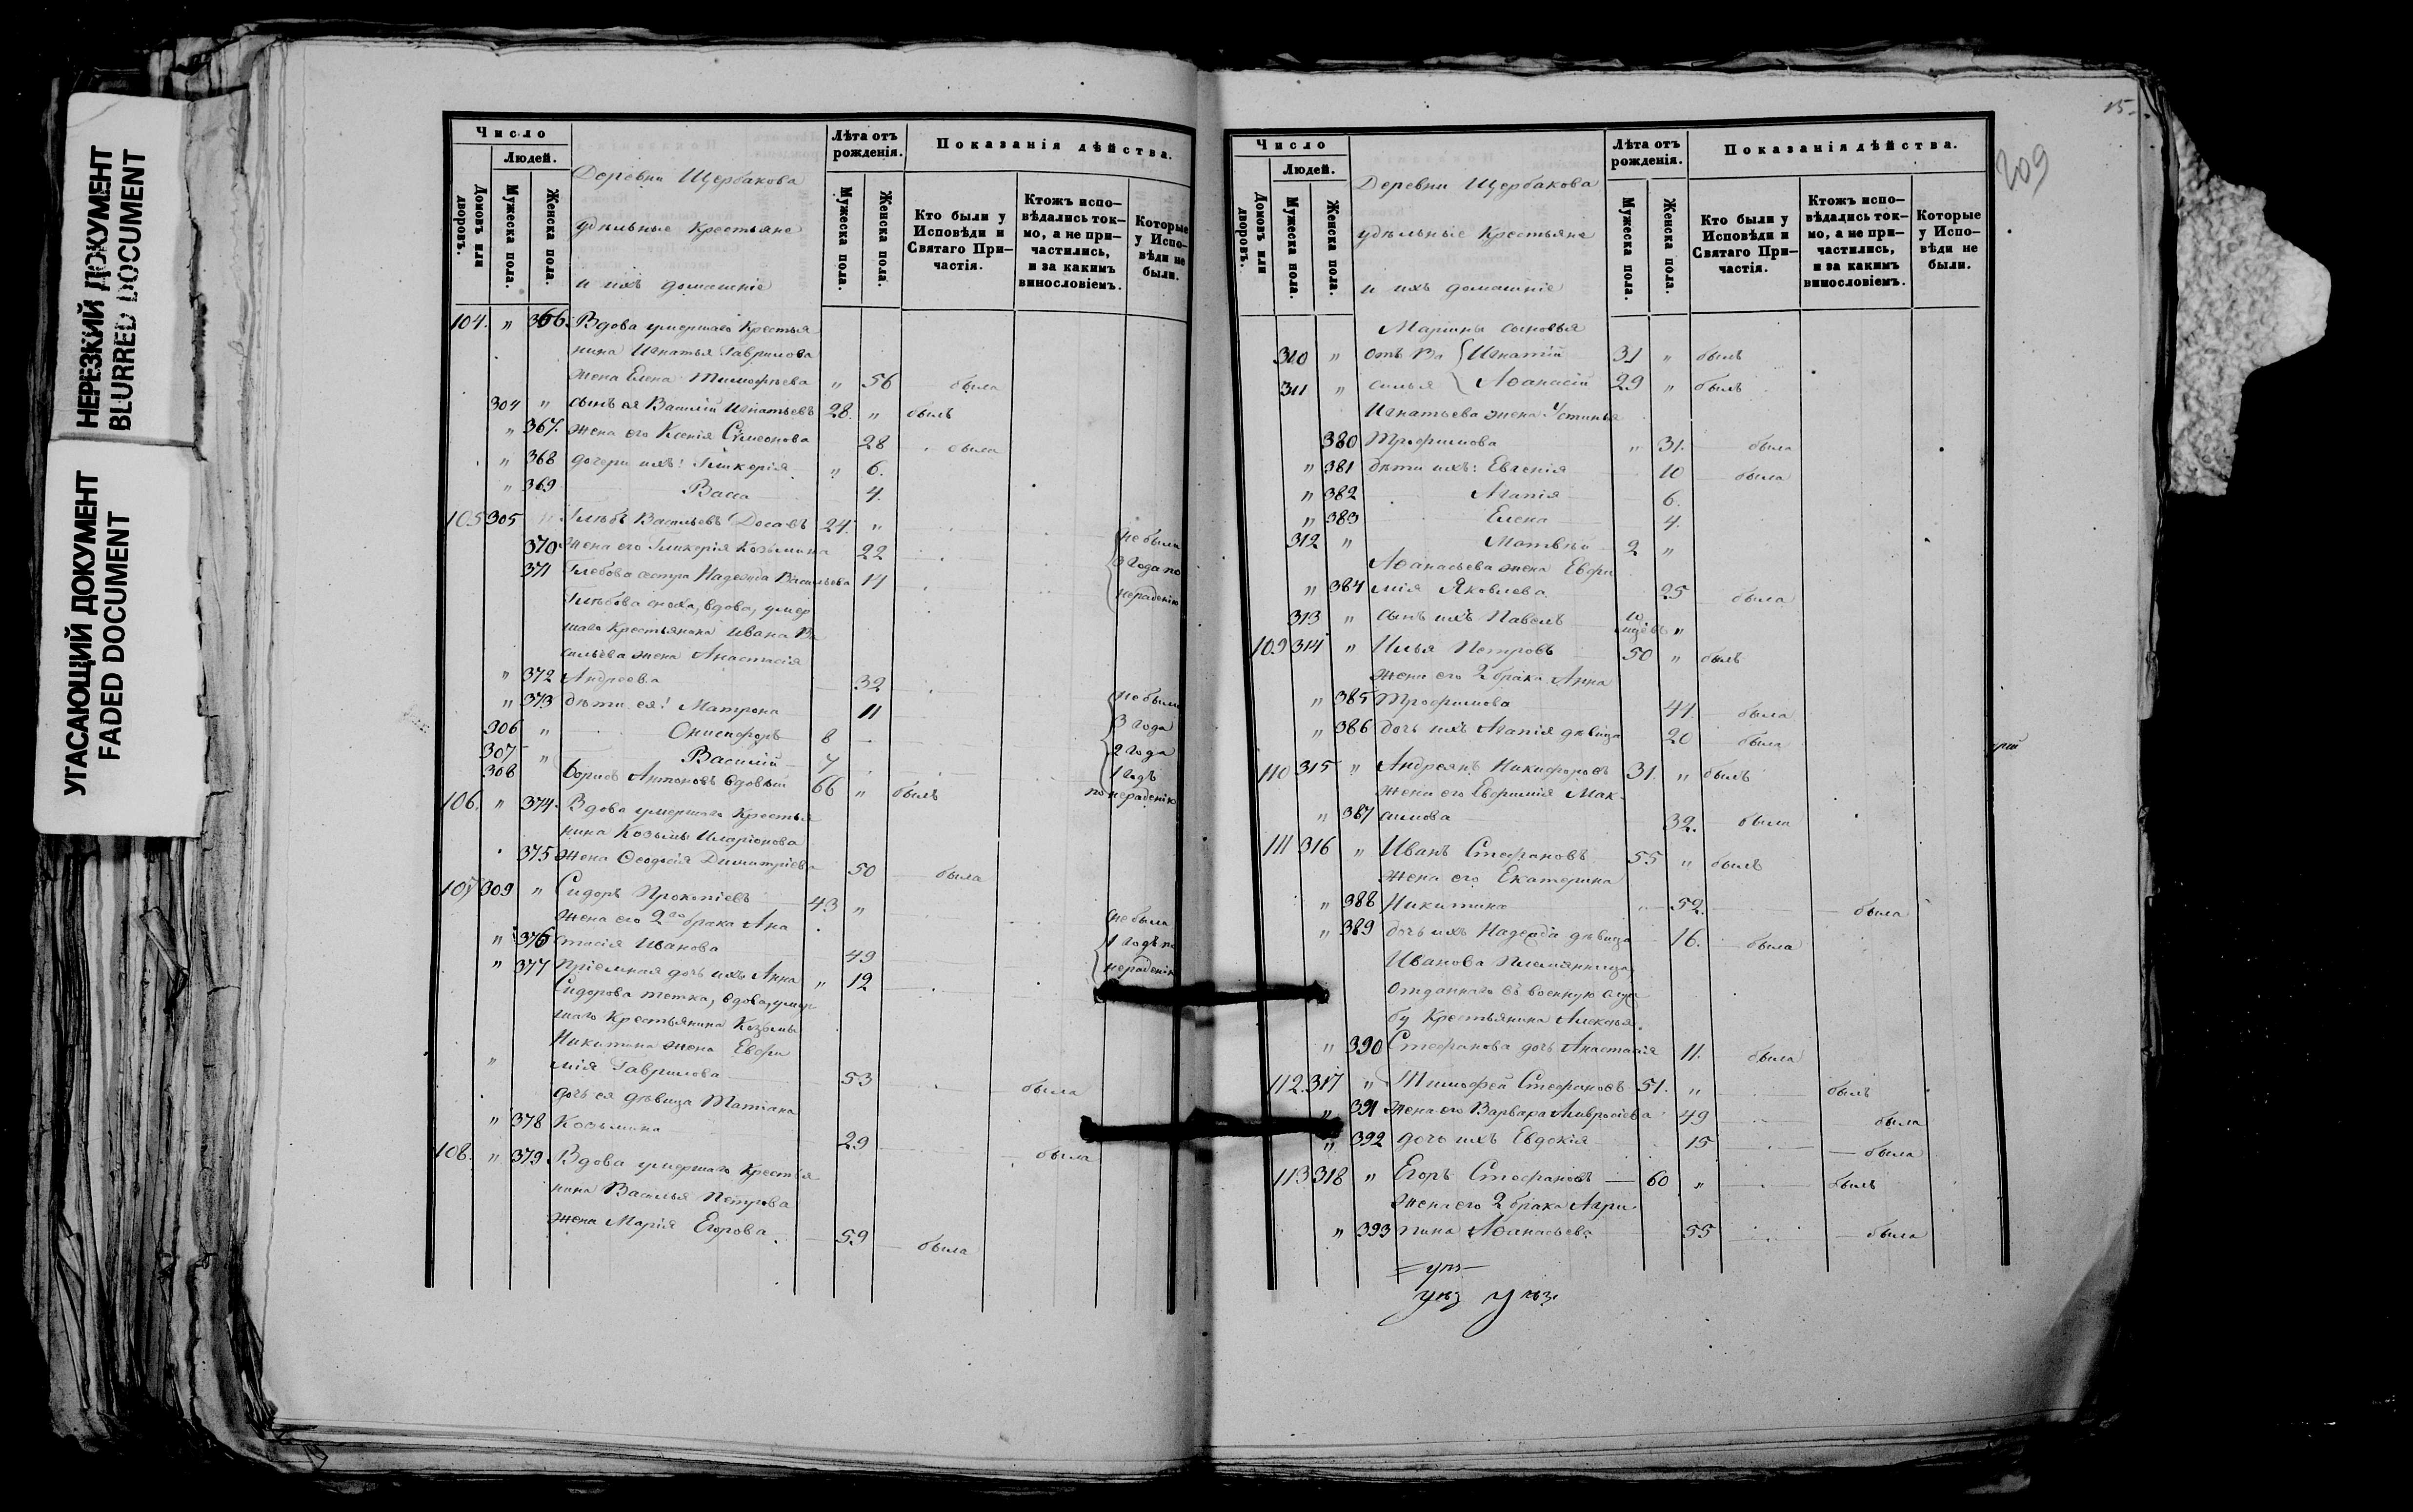 НЕРЕЗКИЙ ДОКУМЕНТ
BLURRED DOCUMENT
УГАСАЮЩИЙ ДОКУМЕНТ
FADED DOCUMENT
Число
Людей.
Домовъ или дворовъ.
Мужеска пола.
Женска пола.
Деревни Щербакова
удѣльные Крестьяне
и ихъ домашніе
Лѣта отъ рожденія.
Мужеска пола.
Женска пола.
Показанія дѣйства.
Кто были у Исповѣди и Святаго При-частія.
Ктожъ испо-вѣдались ток-мо, а не при-частились, и за какимъ винословіемъ.
Которые у Испо-вѣди не были.
104. " 366. Вдова умершаго Крестья
нина Игнатья Гаврилова
жена Елена Тимофѣева " 56 была
304 " сынъ ея Василій Игнатьевъ 28. " былъ
" 367. жена его Ксенія Симеонова 28 была
" 368 дочери ихъ: Гликерія " 6.
" 369 Васса 4.
105 305 " Глѣбъ Васильевъ 24. "
370 жена его Гликерія Козьмина 22 не были
371 Глебова сестра Надежда Васильева 14 3 года по
Глѣбова сноха, вдова, умер нерадѣнію
шаго Крестьянина Ивана Ва
сильева жена Анастасія
" 372 Андреева 32
" 373 дѣти ея: Матрона 11 не были
306 " Онисифоръ 8 3 года
307 " Василій 7 2 года
308 Борисъ Антоновъ вдовый 66 " былъ 1 годъ
по нерадѣнію
106. " 374. Вдова умершаго Крестья
нина Козьмы Иларіонова
375 жена Ѳеодосія Димитріева 50 была
107 309 " Сидоръ Прокопіевъ 43 "
жена его 2го брака Ана не была
" 376 стасія Иванова 49 1 годъ по
" 377 Пріемная дочь ихъ Анна " 12 нерадѣнію
Сидорова тетка, вдова, умер
шаго Крестьянина Козьмы
Никитина жена Евфи
" мія Гаврилова 53 была
дочь ея дѣвица Татіана
" 378 Козьмина 29 была
108. " 379 Вдова умершаго Крестья
нина Василья Петрова
жена Марія Егорова. 59 была
15.
209
Число
Людей.
Домовъ или дворовъ.
Мужеска пола.
Женска пола.
Деревни Щербакова
удѣльные Крестьяне
и ихъ домашніе
Лѣта отъ рожденія.
Мужеска пола.
Женска пола.
Показанія дѣйства.
Кто были у Исповѣди и Святаго При-частія.
Ктожъ испо-вѣдались ток-мо, а не при-частились, и за какимъ винословіемъ.
Которые у Испо-вѣди не были.
Марины сыновья
310 " отъ Ва Игнатій 31 " былъ
311 " силья Аѳанасій 29 " былъ
Игнатьева жена Устинья
380 Трофимова " 31. была
" 381 дѣти ихъ: Евгенія 10 была
" 382 Агапія 6.
" 383 Елена 4.
312 " Матвѣй 2 "
Аѳанасьева жена Евфи
" 384 мія Яковлева. 25 была
313 " сынъ ихъ Павелъ "
109 314 " Илья Петровъ 50 " былъ
жена его 2 брака Анна
" 385 Трофимова 44. была
" 386 дочь ихъ Агапія дѣвица 20 была
110 315 " Андреянъ Никифоровъ 31. " былъ
жена его Евфимія Мак-
" 387 симова 32. была
111 316 " Иванъ Стефановъ 55 " былъ
жена его Екатерина
" 388 Никитина 52. была
" 389 дочь ихъ Надежда дѣвица 16. была
Иванова Племянница,
отданнаго въ военную служ
бу Крестьянина Алексѣя
" 390 Стефанова дочь Анастасія 11. была
112. 317 " Тимофей Стефановъ 51. " былъ
" 391 жена его Варвара Амвросіева 49 была
" 392 дочь ихъ Евдокія 15 была
113 318 " Егоръ Стефановъ 60 " былъ
жена его 2 брака Агри
" 393 пина Аѳанасьева 55 была